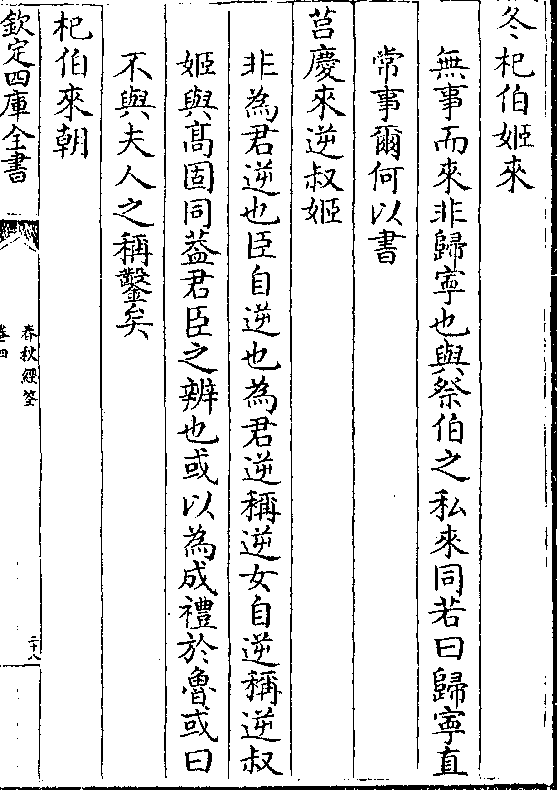 冬杞伯姬來
無事而來非歸寧也與祭伯之私來同若曰歸寧直
常事爾何以書
莒慶來逆叔姬
非為君逆也臣自逆也為君逆稱逆女自逆稱逆叔
姬與髙固同葢君臣之辨也或以為成禮於魯或曰
不與夫人之稱鑿矣
杞伯來朝
欽定四庫全書
春秋經筌
卷四
二十八